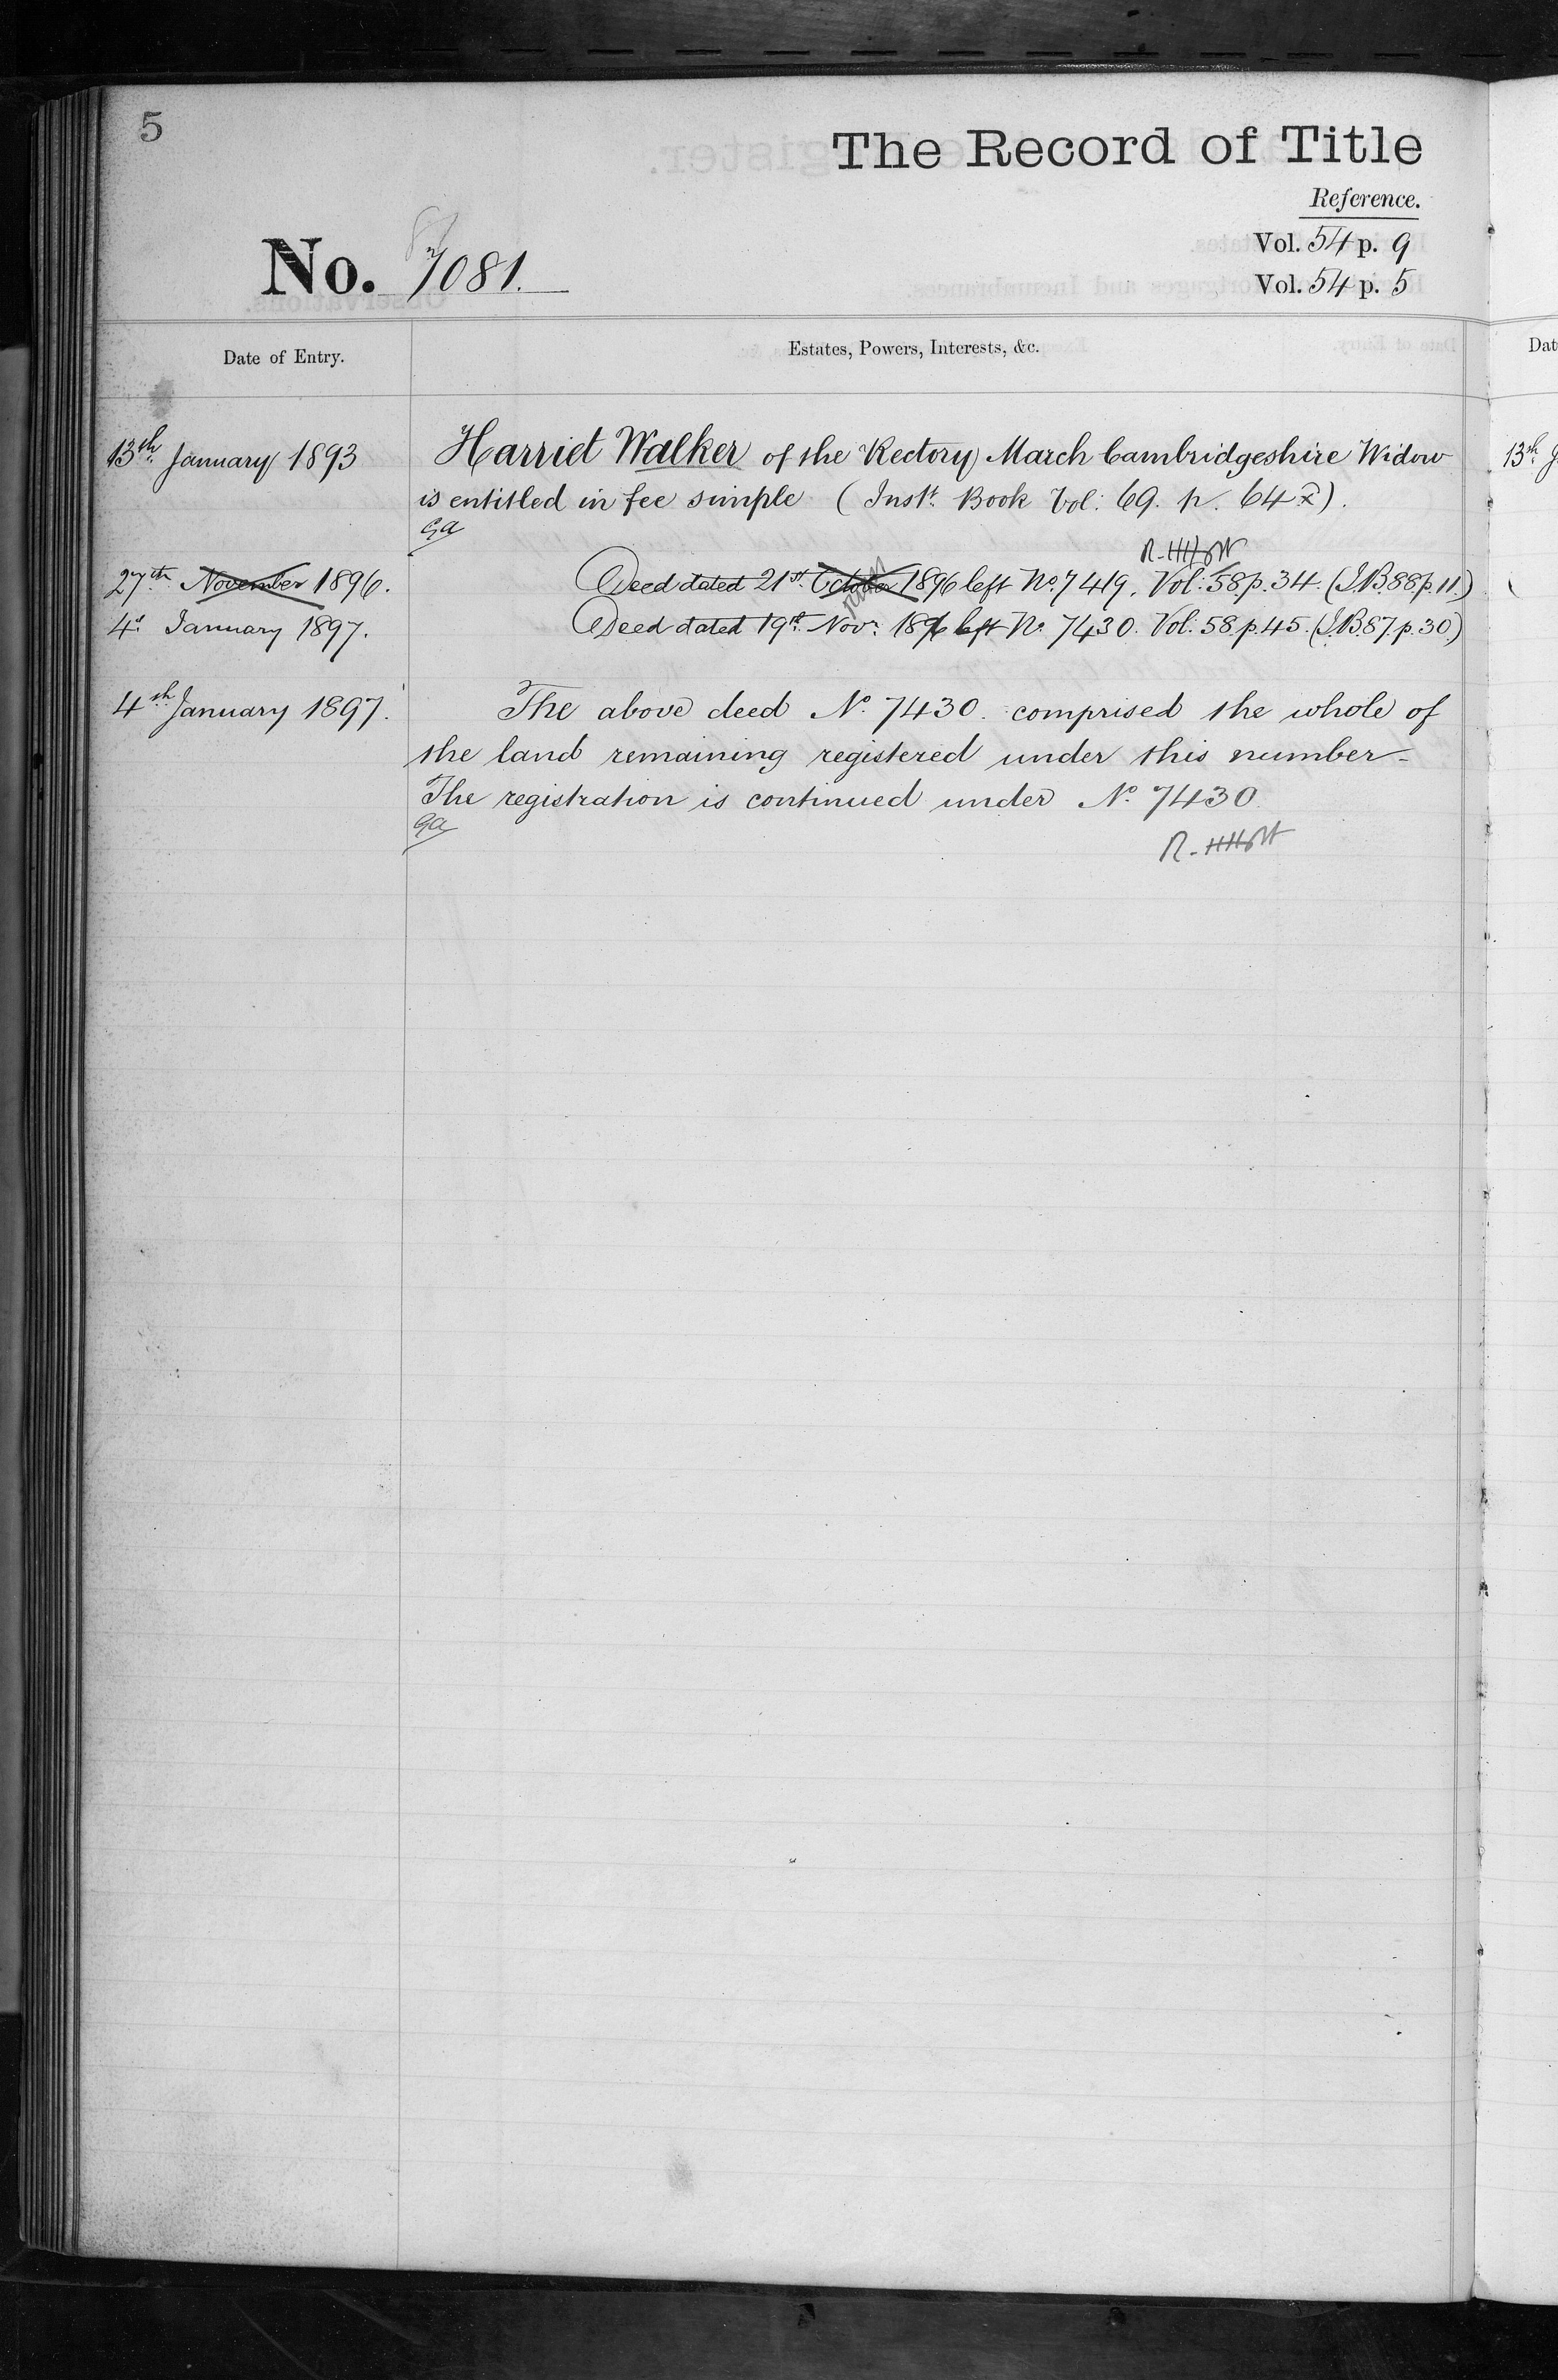 5
The Record of Title
Reference.
Vol. 54 p. 9
No. 7081.
Vol. 54 p. 5
Date of Entry.
Estates, Powers, Interests, &c.
13th January 1893
Harriet Walker of the Rectory March Cambridgeshire Widow
is entitled in fee simple (Inst. Book Vol: 69. p. 64 x).
Ga
27th November 1896.
Deed dated 21st October 1896 left No. 7419. Vol: 58. p. 34. (I.B. 88 p. 11.)
4th January 1897.
Deed dated 19th Novr. 1896 left No. 7430. Vol: 58. p. 45. (I.B. 87. p. 30)
4th January 1897.
The above deed No. 7430. comprised the whole of
the land remaining registered under this number -
The registration is continued under No. 7430
Ga
Dat
13th J